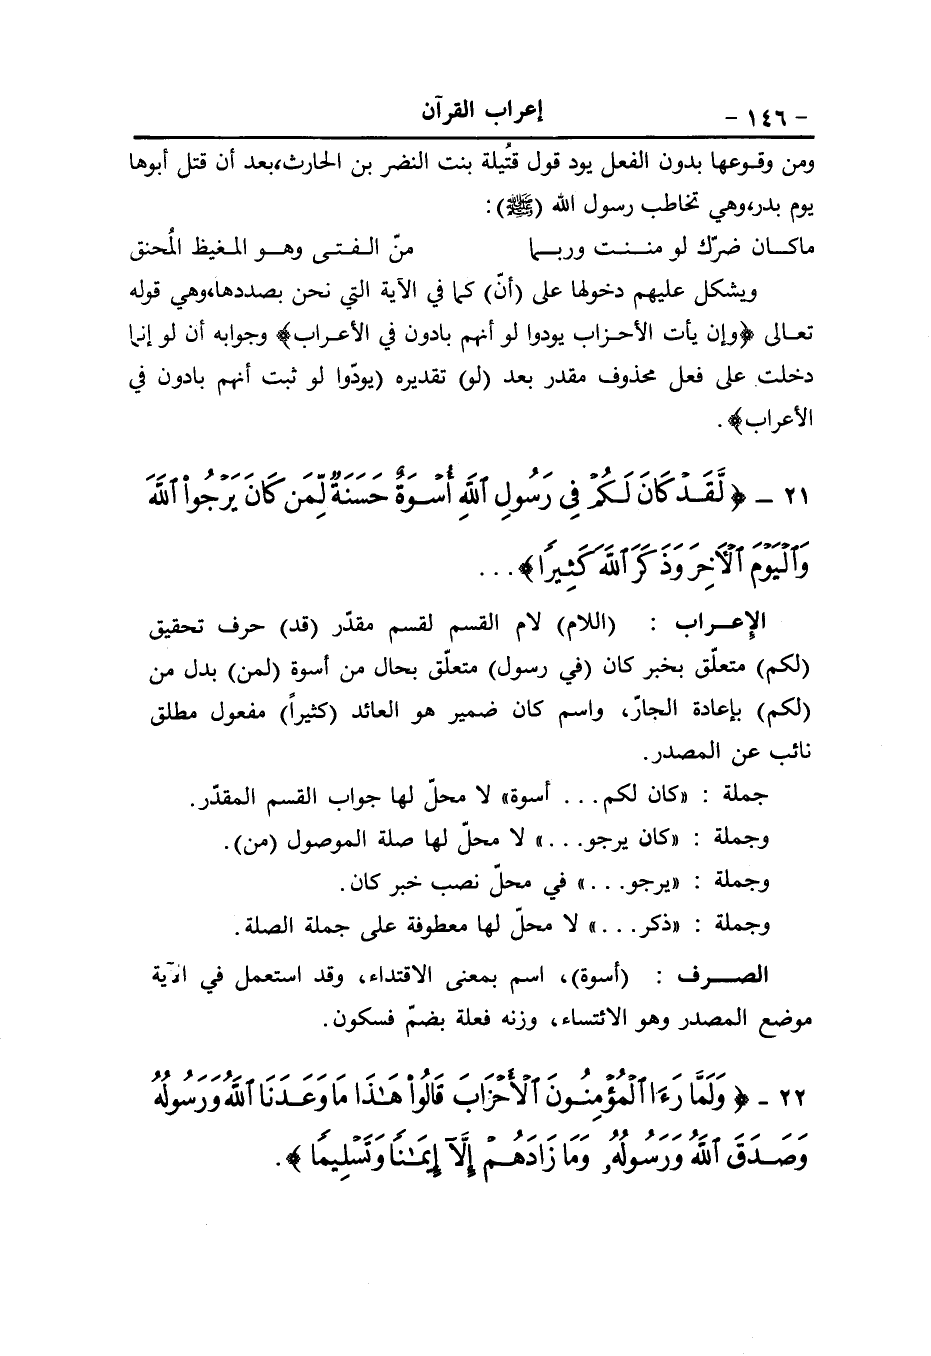 - ١٤٦ - إعراب القرآن
ومن وقوعها بدون الفعل يود قول قتُيلة بنت النضر بن الحارث،بعد أن قتل أبوها
يوم بدر،وهي تخاطب رسول الله (ﷺ):
ماكان ضرّك لو مننت وربما منّ الفتى وهو المغيظ المُحنق
ويشكل عليهم دخولها على (أنّ) كما في الآية التي نحن بصددها،وهي قوله
تعالى ﴿وإن يأت الأحزاب يودوا لو أنهم بادون في الأعراب﴾ وجوابه أن لو إنما
دخلت على فعل محذوف مقدر بعد (لو) تقديره (يودّوا لو ثبت أنهم بادون في
الأعراب﴾.
٢١ - ﴿ لَّقَدْ كَانَ لَكُمْ فِى رَسُولِ ٱللَّهِ أُسْوَةٌ حَسَنَةٌ لِّمَن كَانَ يَرْجُوا۟ ٱللَّهَ
وَٱلْيَوْمَ ٱلْآخِرَ وَذَكَرَ ٱللَّهَ كَثِيرًا﴾...
الإعراب : (اللام) لام القسم لقسم مقدّر (قد) حرف تحقيق
(لكم) متعلّق بخبر كان (في رسول) متعلّق بحال من أسوة (لمن) بدل من
(لكم) بإعادة الجارّ، واسم كان ضمير هو العائد (كثيراً) مفعول مطلق
نائب عن المصدر.
جملة : «كان لكم... أسوة» لا محلّ لها جواب القسم المقدّر.
وجملة : «كان يرجو...» لا محلّ لها صلة الموصول (من).
وجملة : «يرجو...» في محلّ نصب خبر كان.
وجملة : «ذكر...» لا محلّ لها معطوفة على جملة الصلة.
الصرف : (أسوة)، اسم بمعنى الاقتداء، وقد استعمل في الآية
موضع المصدر وهو الائتساء، وزنه فعلة بضمّ فسكون.
٢٢ - ﴿ وَلَمَّا رَءَا ٱلْمُؤْمِنُونَ ٱلْأَحْزَابَ قَالُوا۟ هَٰذَا مَا وَعَدَنَا ٱللَّهُ وَرَسُولُهُۥ
وَصَدَقَ ٱللَّهُ وَرَسُولُهُۥ وَمَا زَادَهُمْ إِلَّآ إِيمَٰنًا وَتَسْلِيمًا ﴾.